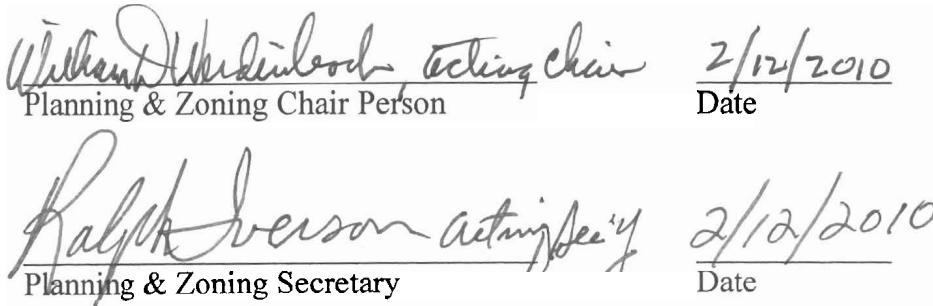 William D acting chair 2/12/2010
Planning & Zoning Chair Person Date
Ralph Iverson acting Sec'y 2/12/2010
Planning & Zoning Secretary Date